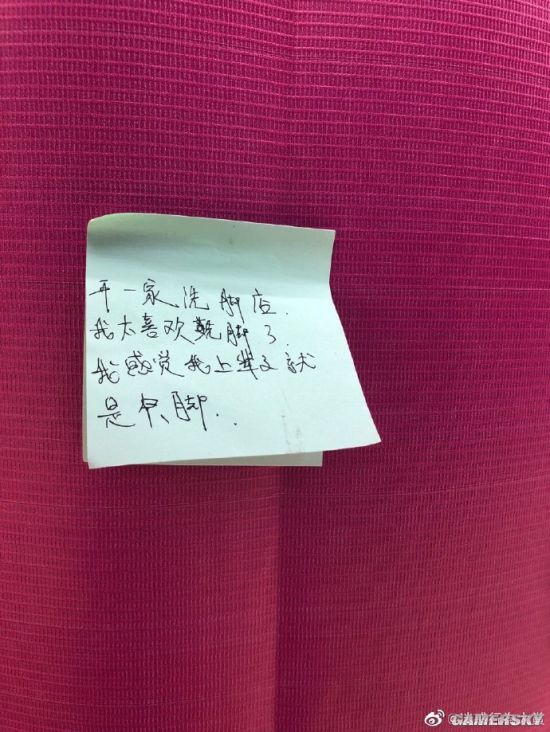 开一家洗脚店.
我太喜欢洗脚了
我感觉我上辈子就
是只脚..
GAMERSKY